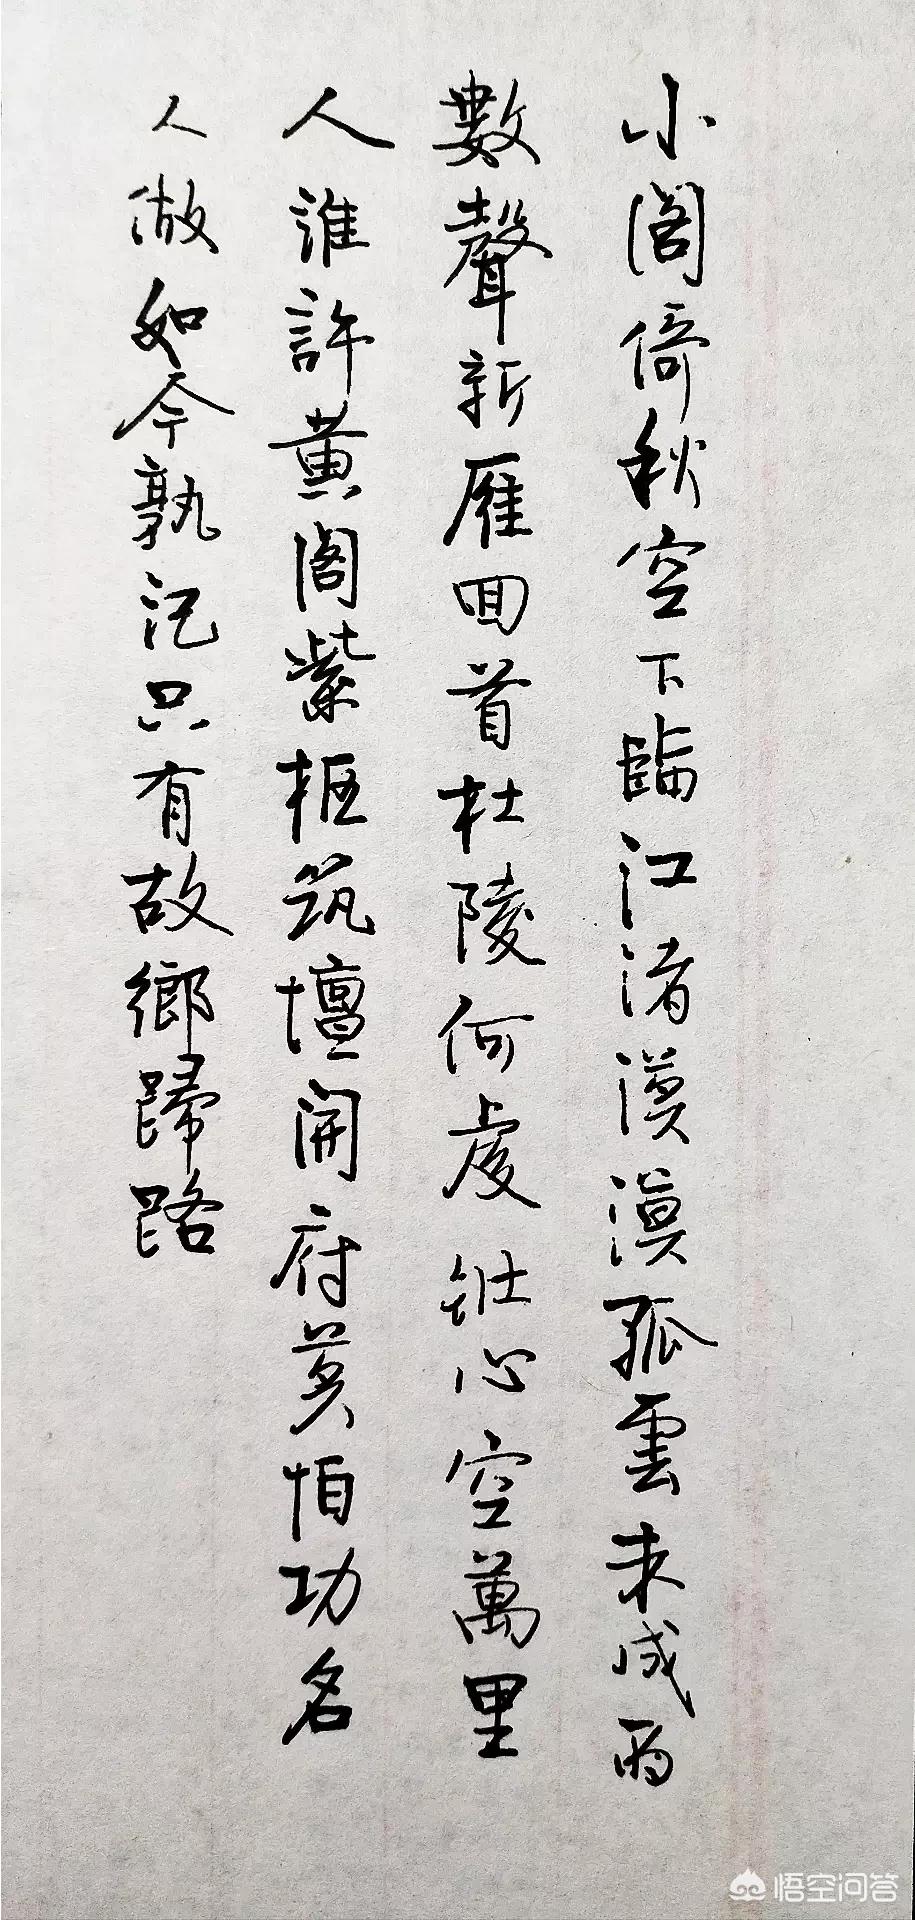 小閣倚秋空下臨江渚漠漠孤雲未成雨
數聲新雁回首杜陵何處壯心空萬里
人誰許黄閣紫枢筑壇開府莫怕功名
人做如今孰记只有故鄉歸路
悟空问答